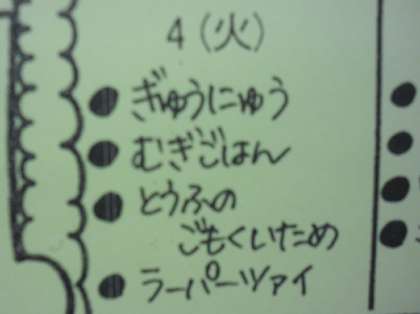 4(火)
ぎゅうにゅう
むぎごはん
とうふの
ごもくいため
ラーパーツァイ